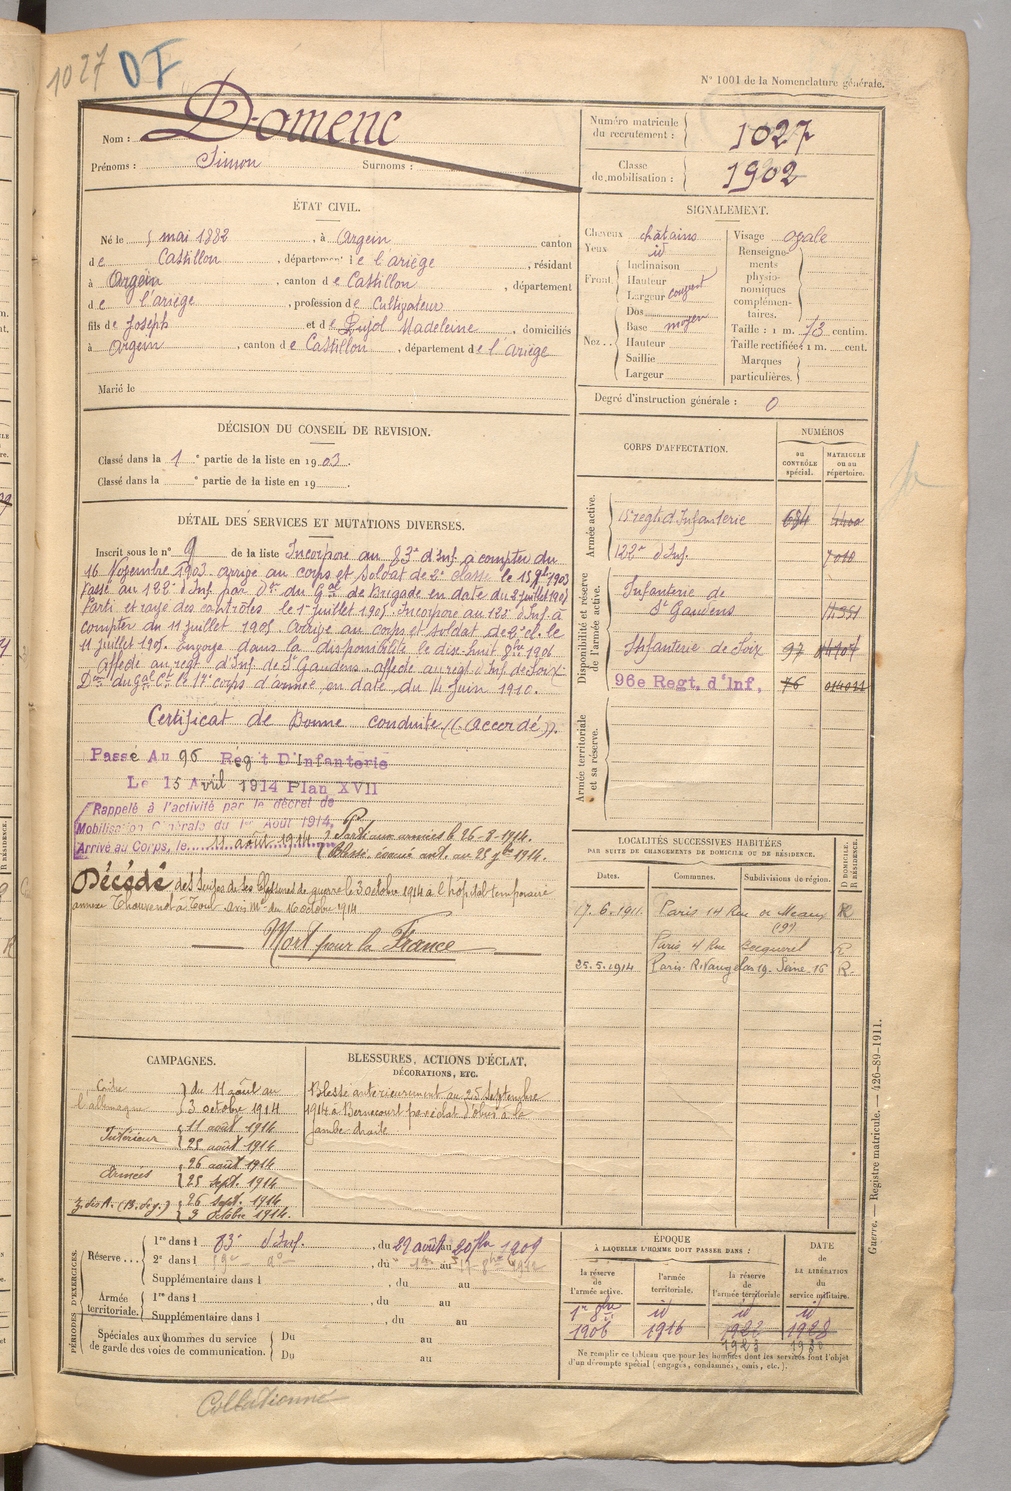 1027 DF
N° 1001 de la Nomenclature générale.
Nom : Domenc
Prénoms : Simon Surnoms :
Numéro matricule du recrutement : 1027
Classe de mobilisation : 1902
ÉTAT CIVIL.
Né le 5 mai 1882, à Argein canton
de Castillon, département de l'ariège, résidant
à Argein, canton de Castillon, département
de l'ariège, profession de Cultivateur
fils de Joseph et de Pujol Madeleine, domiciliés
à Argein, canton de Castillon, département de l'ariège
Marié le
SIGNALEMENT.
Cheveux châtains
Yeux id
Front Inclinaison
Hauteur
Largeur
Nez Dos
Base moyen
Hauteur
Saillie
Largeur
Visage ovale
Renseignements physionomiques complémentaires.
Taille : 1 m. 73 centim.
Taille rectifiée : 1 m. cent.
Marques particulières.
Degré d'instruction générale : 0
DÉCISION DU CONSEIL DE REVISION.
Classé dans la 1e partie de la liste en 1903.
Classé dans la e partie de la liste en 19 .
CORPS D'AFFECTATION.
NUMÉROS
au CONTRÔLE spécial.
MATRICULE ou au répertoire.
Armée active.
regt. d'Infanterie 684
122e d'Inf. 7010
Disponibilité et réserve de l'armée active.
Infanterie de
St Gaudens
Infanterie de Foix 97
96e Regt. d'Inf. 76
Armée territoriale et sa réserve.
DÉTAIL DES SERVICES ET MUTATIONS DIVERSES.
Inscrit sous le n° 9 de la liste Incorporé au 83e d'Inf. à compter du
16 Novembre 1903. arrivé au corps et soldat de 2e classe le 15 9bre 1903
Passé au 122e d'Inf. par Don du Gal de Brigade en date du 2 juillet 1905
Parti et rayé des contrôles le 1er juillet 1905. Incorporé au 122e d'Inf. à
compter du 11 juillet 1905 Arrivé au corps et soldat de 2e cl. le
11 juillet 1905. Envoyé dans la disponibilité le dix-huit 1906
Affecté au regt. d'Inf. de St Gaudens. affecté au regt. d'Inf. de Foix.
Don du Gal Ct le 17e corps d'armée, en date du 14 Juin 1910.
Certificat de Bonne conduite ((Accordé)).
Passé Au 96 Rég't D'Infanterie
Le 15 Avril 1914 Plan XVII
Rappelé à l'activité par le décret de
Mobilisation Générale du 1er Août 1914.
Arrivé au Corps, le 11 août 1914
Parti aux armées le 26-8-1914.
Blessé évacué ant. au 25 7bre 1914.
Décédé des suites de ses blessures de guerre le 3 octobre 1914 à l'hôpital temporaire
annexe Thouvenot à Toul avis Mel du 16 octobre 1914
Mort pour la France
LOCALITÉS SUCCESSIVES HABITÉES
PAR SUITE DE CHANGEMENTS DE DOMICILE OU DE RÉSIDENCE.
Dates. Communes. Subdivisions de région. D DOMICILE. R RÉSIDENCE.
17.6.1911. Paris 14 Rue de Meaux R
(19)
Paris 4 Rue Becquerel
25.5.1914 Paris. R. Vaugelas 19. Seine R
CAMPAGNES.
Contre l'allemagne du 11 août au
3 octobre 1914
Intérieur 11 août 1914
25 août 1914
Armées 26 août 1914
25 sept. 1914
Z. des A. 26 sept. 1914.
3 octobre 1914.
BLESSURES, ACTIONS D'ÉCLAT, DÉCORATIONS, ETC.
Blessé antérieurement au 25 septembre
1914 à Bernecourt par éclat d'obus à la
jambe droite
PÉRIODES D'EXERCICES.
Réserve 1re dans l 83e d'Inf., du 29 août au 20 1909
2e dans l , du au
Supplémentaire dans l , du au
Armée territoriale. 1re dans l , du au
Supplémentaire dans l , du au
Spéciales aux hommes du service de garde des voies de communication. Du au
Du au
ÉPOQUE
À LAQUELLE L'HOMME DOIT PASSER DANS :
la réserve de l'armée active.
l'armée territoriale.
la réserve de l'armée territoriale
DATE DE LA LIBÉRATION du service militaire.
1er 8bre id id id
1906 1916 1922 1928
Ne remplir ce tableau que pour les hommes dont les services font l'objet
d'un décompte spécial (engagés, condamnés, omis, etc.).
Guerre. — Registre matricule. — 426-89-1911.
Collationné